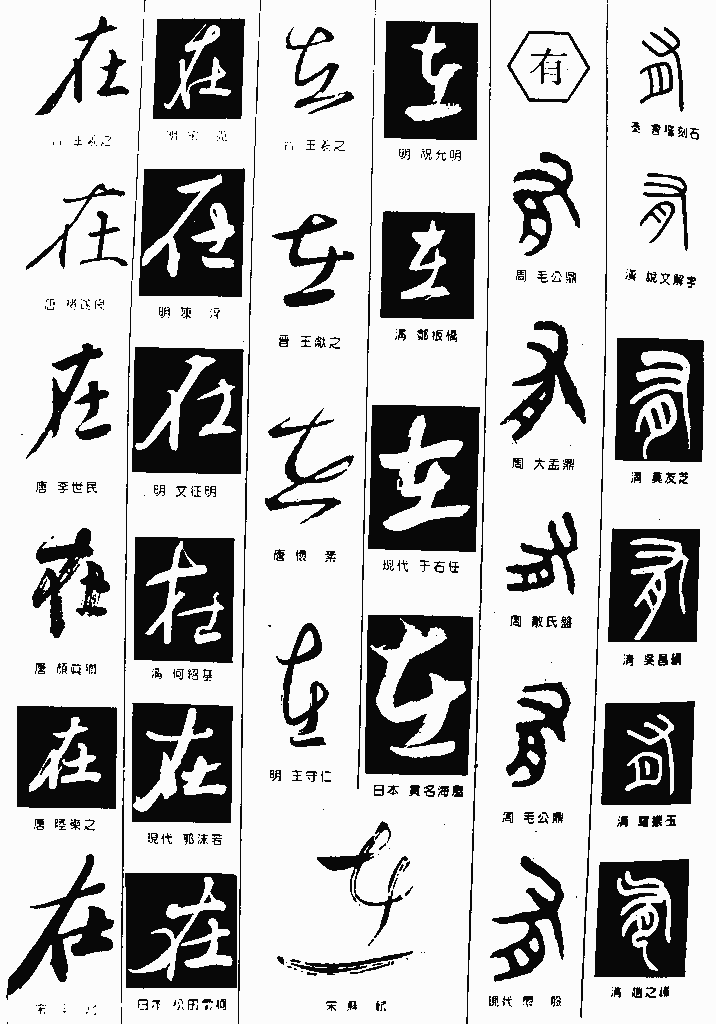 在
王羲之
在
唐 褚遂良
在
唐 李世民
在
唐 顏真卿
在
唐 陸柬之
在
宋
在
明
在
明 陳淳
在
明 文征明
在
清 何紹基
在
現代 郭沫若
在
日本 松田雪柯
在
晋 王羲之
在
晋 王獻之
在
唐 懷素
在
明 王守仁
在
宋 蘇軾
在
明 祝允明
在
清 鄭板橋
在
現代 于右任
在
日本 貫名海屋
有
有
周 毛公鼎
有
周 大盂鼎
有
周 散氏盤
有
周 毛公鼎
有
現代
有
秦 會稽刻石
有
漢 說文解字
有
清 莫友芝
有
清 吳昌碩
有
清 羅振玉
有
清 趙之謙